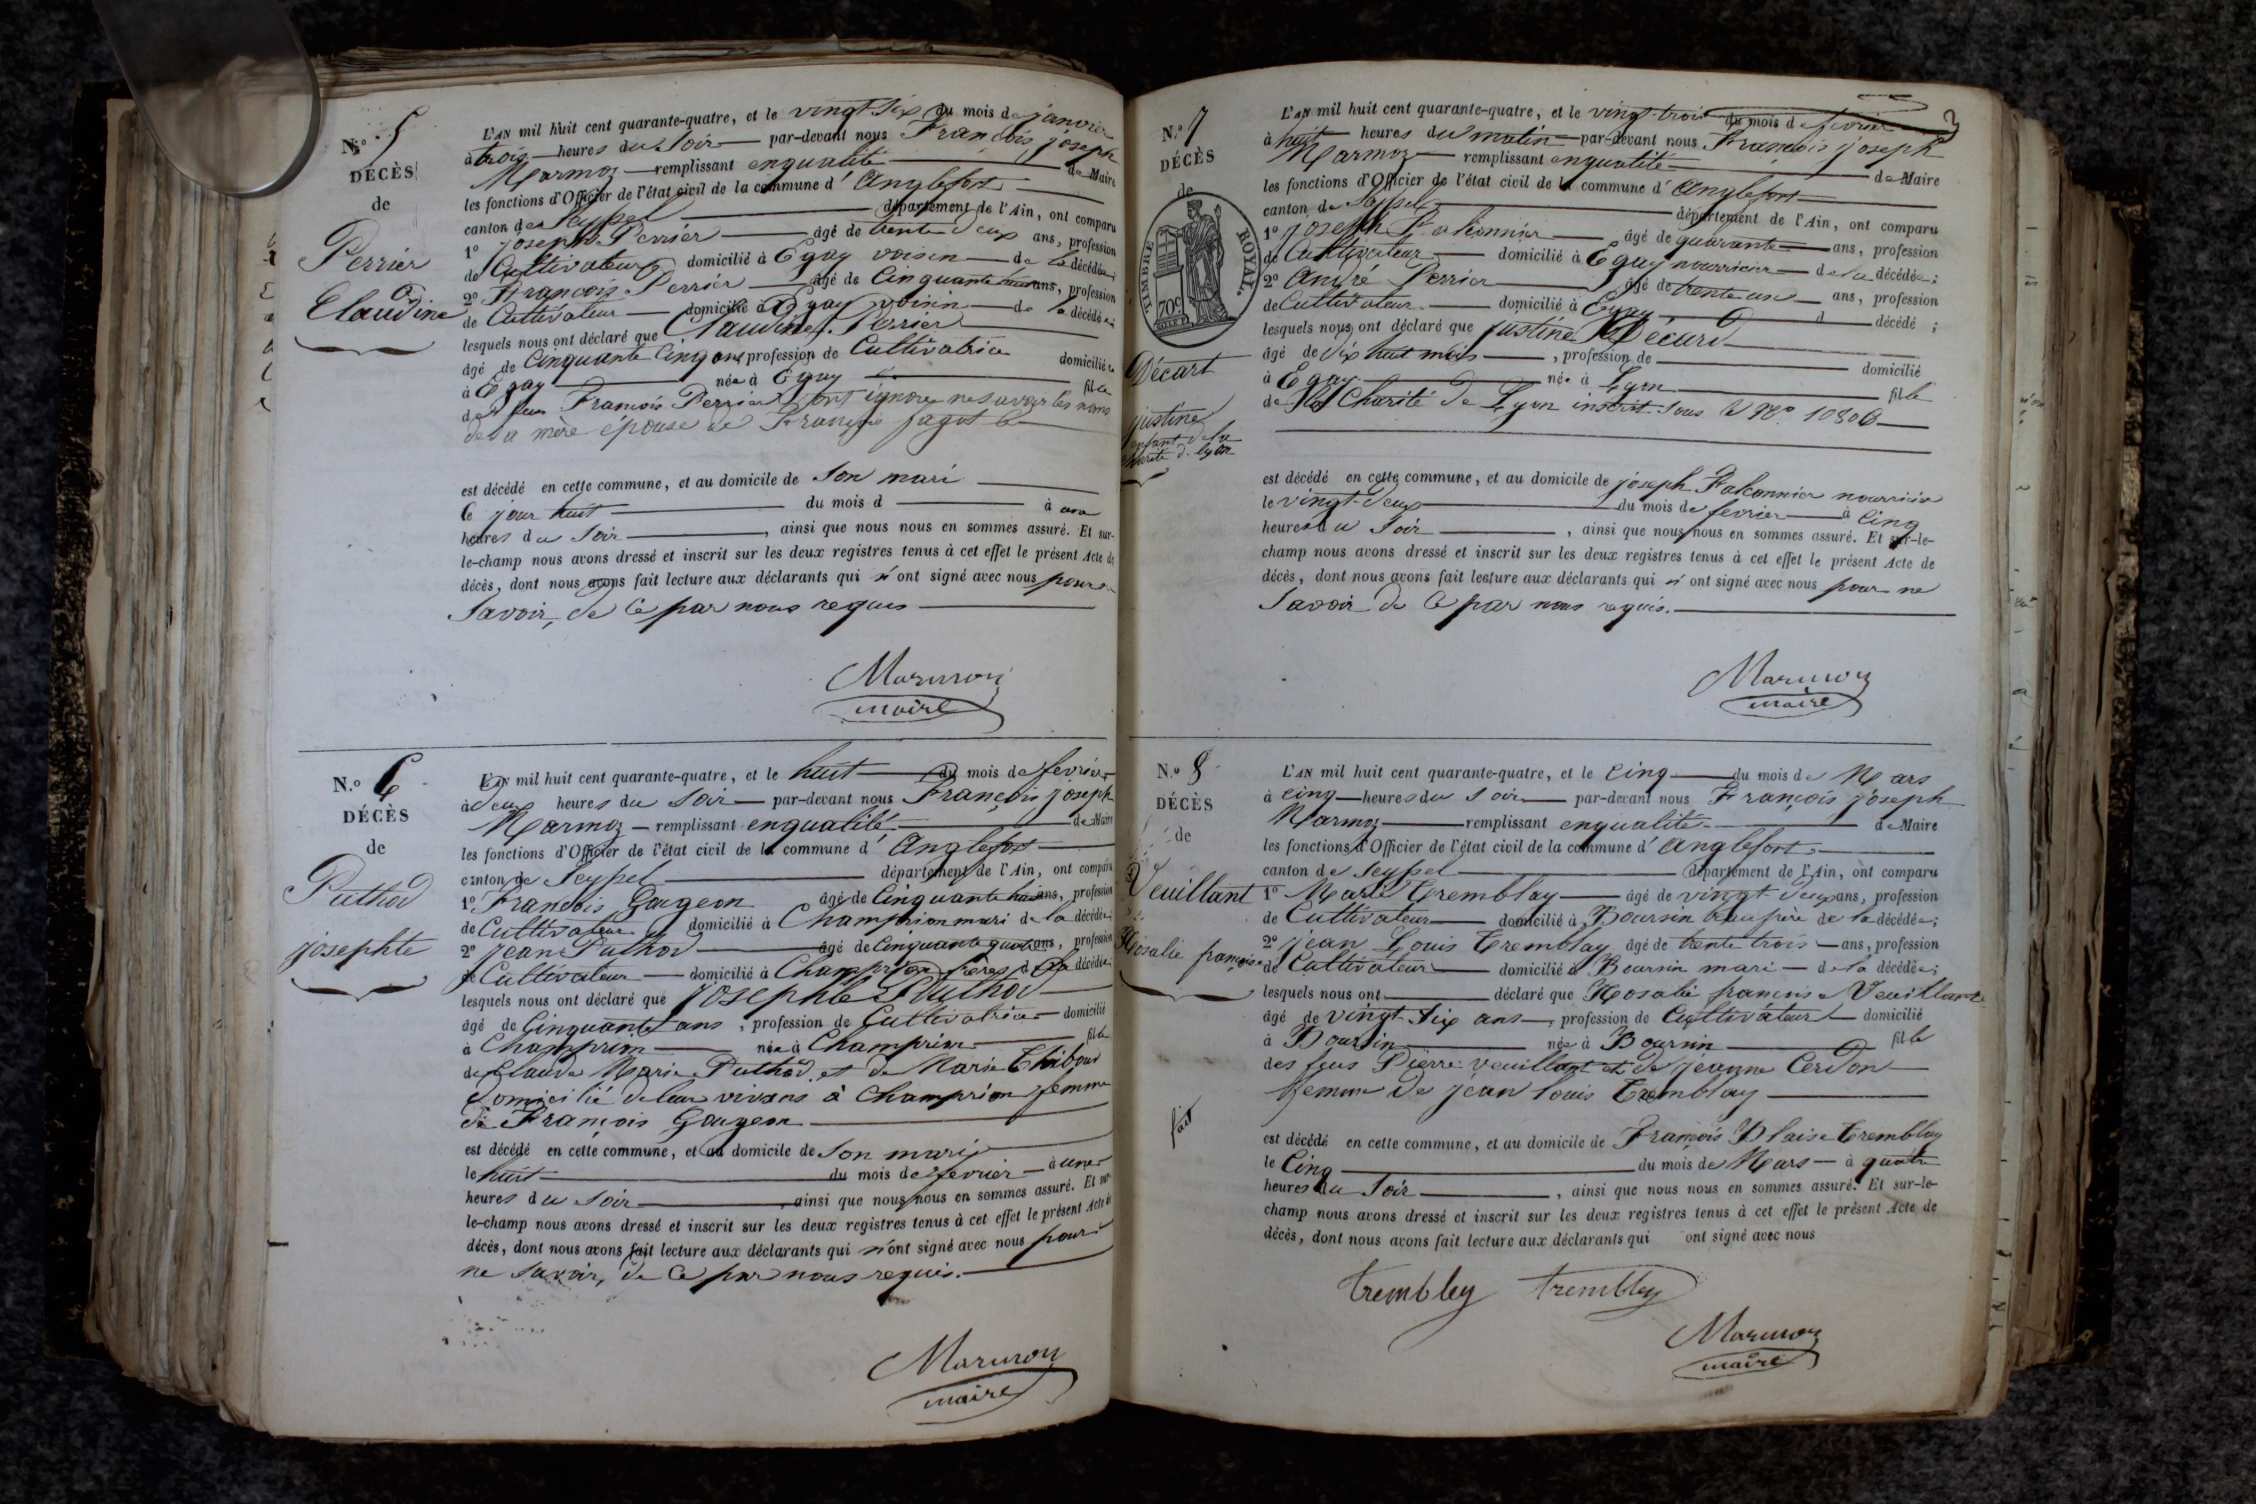 N.° 5
DÉCÈS
de
Perrier
Claudine
L'AN mil huit cent quarante-quatre, et le vingt-six du mois de janvier
à trois heures du Soir par-devant nous François joseph
Marmoz remplissant enqualité de Maire
les fonctions d'Officier de l'état civil de la commune d' Anglefort
canton de Seyssel département de l'Ain, ont comparu
1° joseph Perrier âgé de trente deux ans, profession
de Cultivateur domicilié à Egay voisin de la décédée;
2° François Perrier âgé de Cinquante ans, profession
de Cultivateur domicilié à Egay voisin de la décédée;
lesquels nous ont déclaré que Claudine Perrier
âgé de Cinquante Cinq ans profession de Cultivatrice domicilié
à Egay née à Egay fille
de feu François Perrier ont ignore ne savoir les noms
de la mère épouse de François fagot
est décédé en cette commune, et au domicile de Son mari
le jour huit du mois d à une
heures du Soir, ainsi que nous nous en sommes assuré. Et sur-
le-champ nous avons dressé et inscrit sur les deux registres tenus à cet effet le présent Acte de
décès, dont nous avons fait lecture aux déclarants qui n'ont signé avec nous pour ne
Savoir, de Ce par nous requis
Marmoz
maire
N.° 6
DÉCÈS
de
Puthod
josephte
L'AN mil huit cent quarante-quatre, et le huit du mois de fevrier
à deux heures du Soir par-devant nous François joseph
Marmoz remplissant enqualité de Maire
les fonctions d'Officier de l'état civil de la commune d' Anglefort
canton de Seyssel département de l'Ain, ont comparu
1° François Gougeon âgé de Cinquante ans, profession
de Cultivateur domicilié à Champrion mari de la décédée;
2° jean Puthod âgé de Cinquante quatre ans, profession
de Cultivateur domicilié à Champrion frères de la décédée;
lesquels nous ont déclaré que josephte Puthod
âgé de Cinquante ans, profession de Cultivatrice domicilié
à Champrion née à Champrion fille
de Claude Marie Puthod et de Marie
domicilié de leur vivans à Champrion femme
de François Gougeon
est décédé en cette commune, et au domicile de Son mari
le huit du mois de fevrier à une
heures du Soir, ainsi que nous nous en sommes assuré. Et sur-
le-champ nous avons dressé et inscrit sur les deux registres tenus à cet effet le présent Acte de
décès, dont nous avons fait lecture aux déclarants qui n'ont signé avec nous pour
ne Savoir, de Ce par nous requis.
Marmoz
maire
3
N.° 7
DÉCÈS
de
TIMBRE ROYAL.
70 c
Décart
justine
enfant de la
charité de lyon
L'AN mil huit cent quarante-quatre, et le vingt-trois du mois de fevrier
à huit heures du matin par-devant nous François joseph
Marmoz remplissant enqualité de Maire
les fonctions d'Officier de l'état civil de la commune d' Anglefort
canton de Seyssel département de l'Ain, ont comparu
1° joseph Falconnier âgé de quarante ans, profession
de Cultivateur domicilié à Egay nourricier de la décédée;
2° André Perrier âgé de trente un ans, profession
de Cultivateur domicilié à Egay d décédé;
lesquels nous ont déclaré que justine Décard
âgé de dix huit mois, profession de domicilié
à Egay née à Lyon fille
de la Charité de Lyon inscrit Sous le N° 10306
est décédé en cette commune, et au domicile de joseph Falconnier nourricier
le vingt-deux du mois de fevrier à Cinq
heures du Soir, ainsi que nous nous en sommes assuré. Et sur-le-
champ nous avons dressé et inscrit sur les deux registres tenus à cet effet le présent Acte de
décès, dont nous avons fait lecture aux déclarants qui n'ont signé avec nous pour ne
Savoir de Ce par nous requis.
Marmoz
maire
N.° 8
DÉCÈS
de
Veuillant
Rosalie françoise
fait
L'AN mil huit cent quarante-quatre, et le Cinq du mois de Mars
à Cinq heures du Soir par-devant nous François joseph
Marmoz remplissant enqualité de Maire
les fonctions d'Officier de l'état civil de la commune d' Anglefort
canton de Seyssel département de l'Ain, ont comparu
1° Marie Tremblay âgé de vingt deux ans, profession
de Cultivateur domicilié à Boursin beau frère de la décédée;
2° jean Louis Tremblay âgé de trente trois ans, profession
de Cultivateur domicilié à Boursin mari de la décédée;
lesquels nous ont déclaré que Rosalie francoise Veuillant
âgé de vingt Six ans, profession de Cultivateur domicilié
à Boursin née à Boursin fille
des feus Pierre veuillant et de jeanne Cerdon
femme de jean louis Tremblay
est décédé en cette commune, et au domicile de François Blaise Tremblay
le Cinq du mois de Mars à quatre
heures du Soir, ainsi que nous nous en sommes assuré. Et sur-le-
champ nous avons dressé et inscrit sur les deux registres tenus à cet effet le présent Acte de
décès, dont nous avons fait lecture aux déclarants qui ont signé avec nous
Trembley Trembley
Marmoz
maire